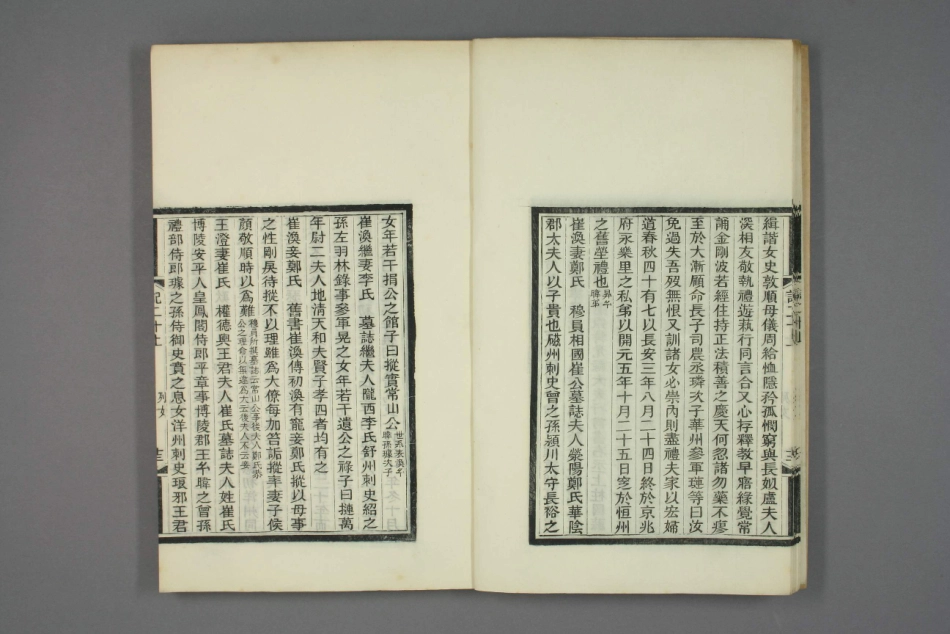 緝諧女史敦順母儀周給恤隱矜孤憫窮與長姒盧夫人
深相友敬執禮遊萟行同言合又心存釋教早寤緣覺常
誦金剛波若經住持正法積善之慶天何忍諸勿藥不瘳
至於大漸願命長子司農丞璘次子華州參軍璉等曰汝
免過失吾歿無恨又訓諸女必崇內則盡禮夫家以宏婦
道春秋四十有七以長安三年八月二十四日終於京兆
府永樂里之私第以開元五年十月二十五日窆於恒州
之舊塋禮也
崔渙妻鄭氏 穆員相國崔公墓誌夫人滎陽鄭氏華陰
郡太夫人以子貴也磁州刺史曾之孫潁川太守長裕之
女年若干捐公之館子曰摐實常山公
崔渙繼妻李氏 墓誌繼夫人隴西李氏舒州刺史紹之
孫左羽林錄事參軍晃之女年若干遺公之祿子曰摙萬
年尉二夫人地清天和夫賢子孝四者均有之
崔渙妾鄭氏 舊書崔渙傳初渙有寵妾鄭氏摐以母事
之性剛戾待摐不以理雖為大僚每加笞詬摐率妻子候
顏敬順時以為難
王澄妻崔氏 權德輿王君夫人崔氏墓誌夫人姓崔氏
博陵安平人皇鳳閣侍郎平章事博陵郡王
曾孫
禮部侍郎璩之孫侍御史賁之息女洋州刺史琅邪王君
記二十上
列女